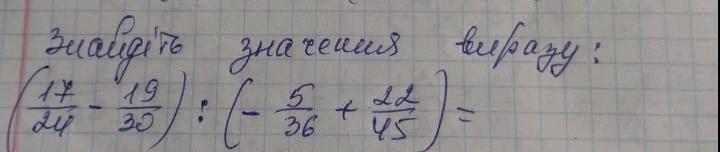 Знайдіть значення виразу:
(17/24 - 19/30) : (- 5/36 + 22/45) =